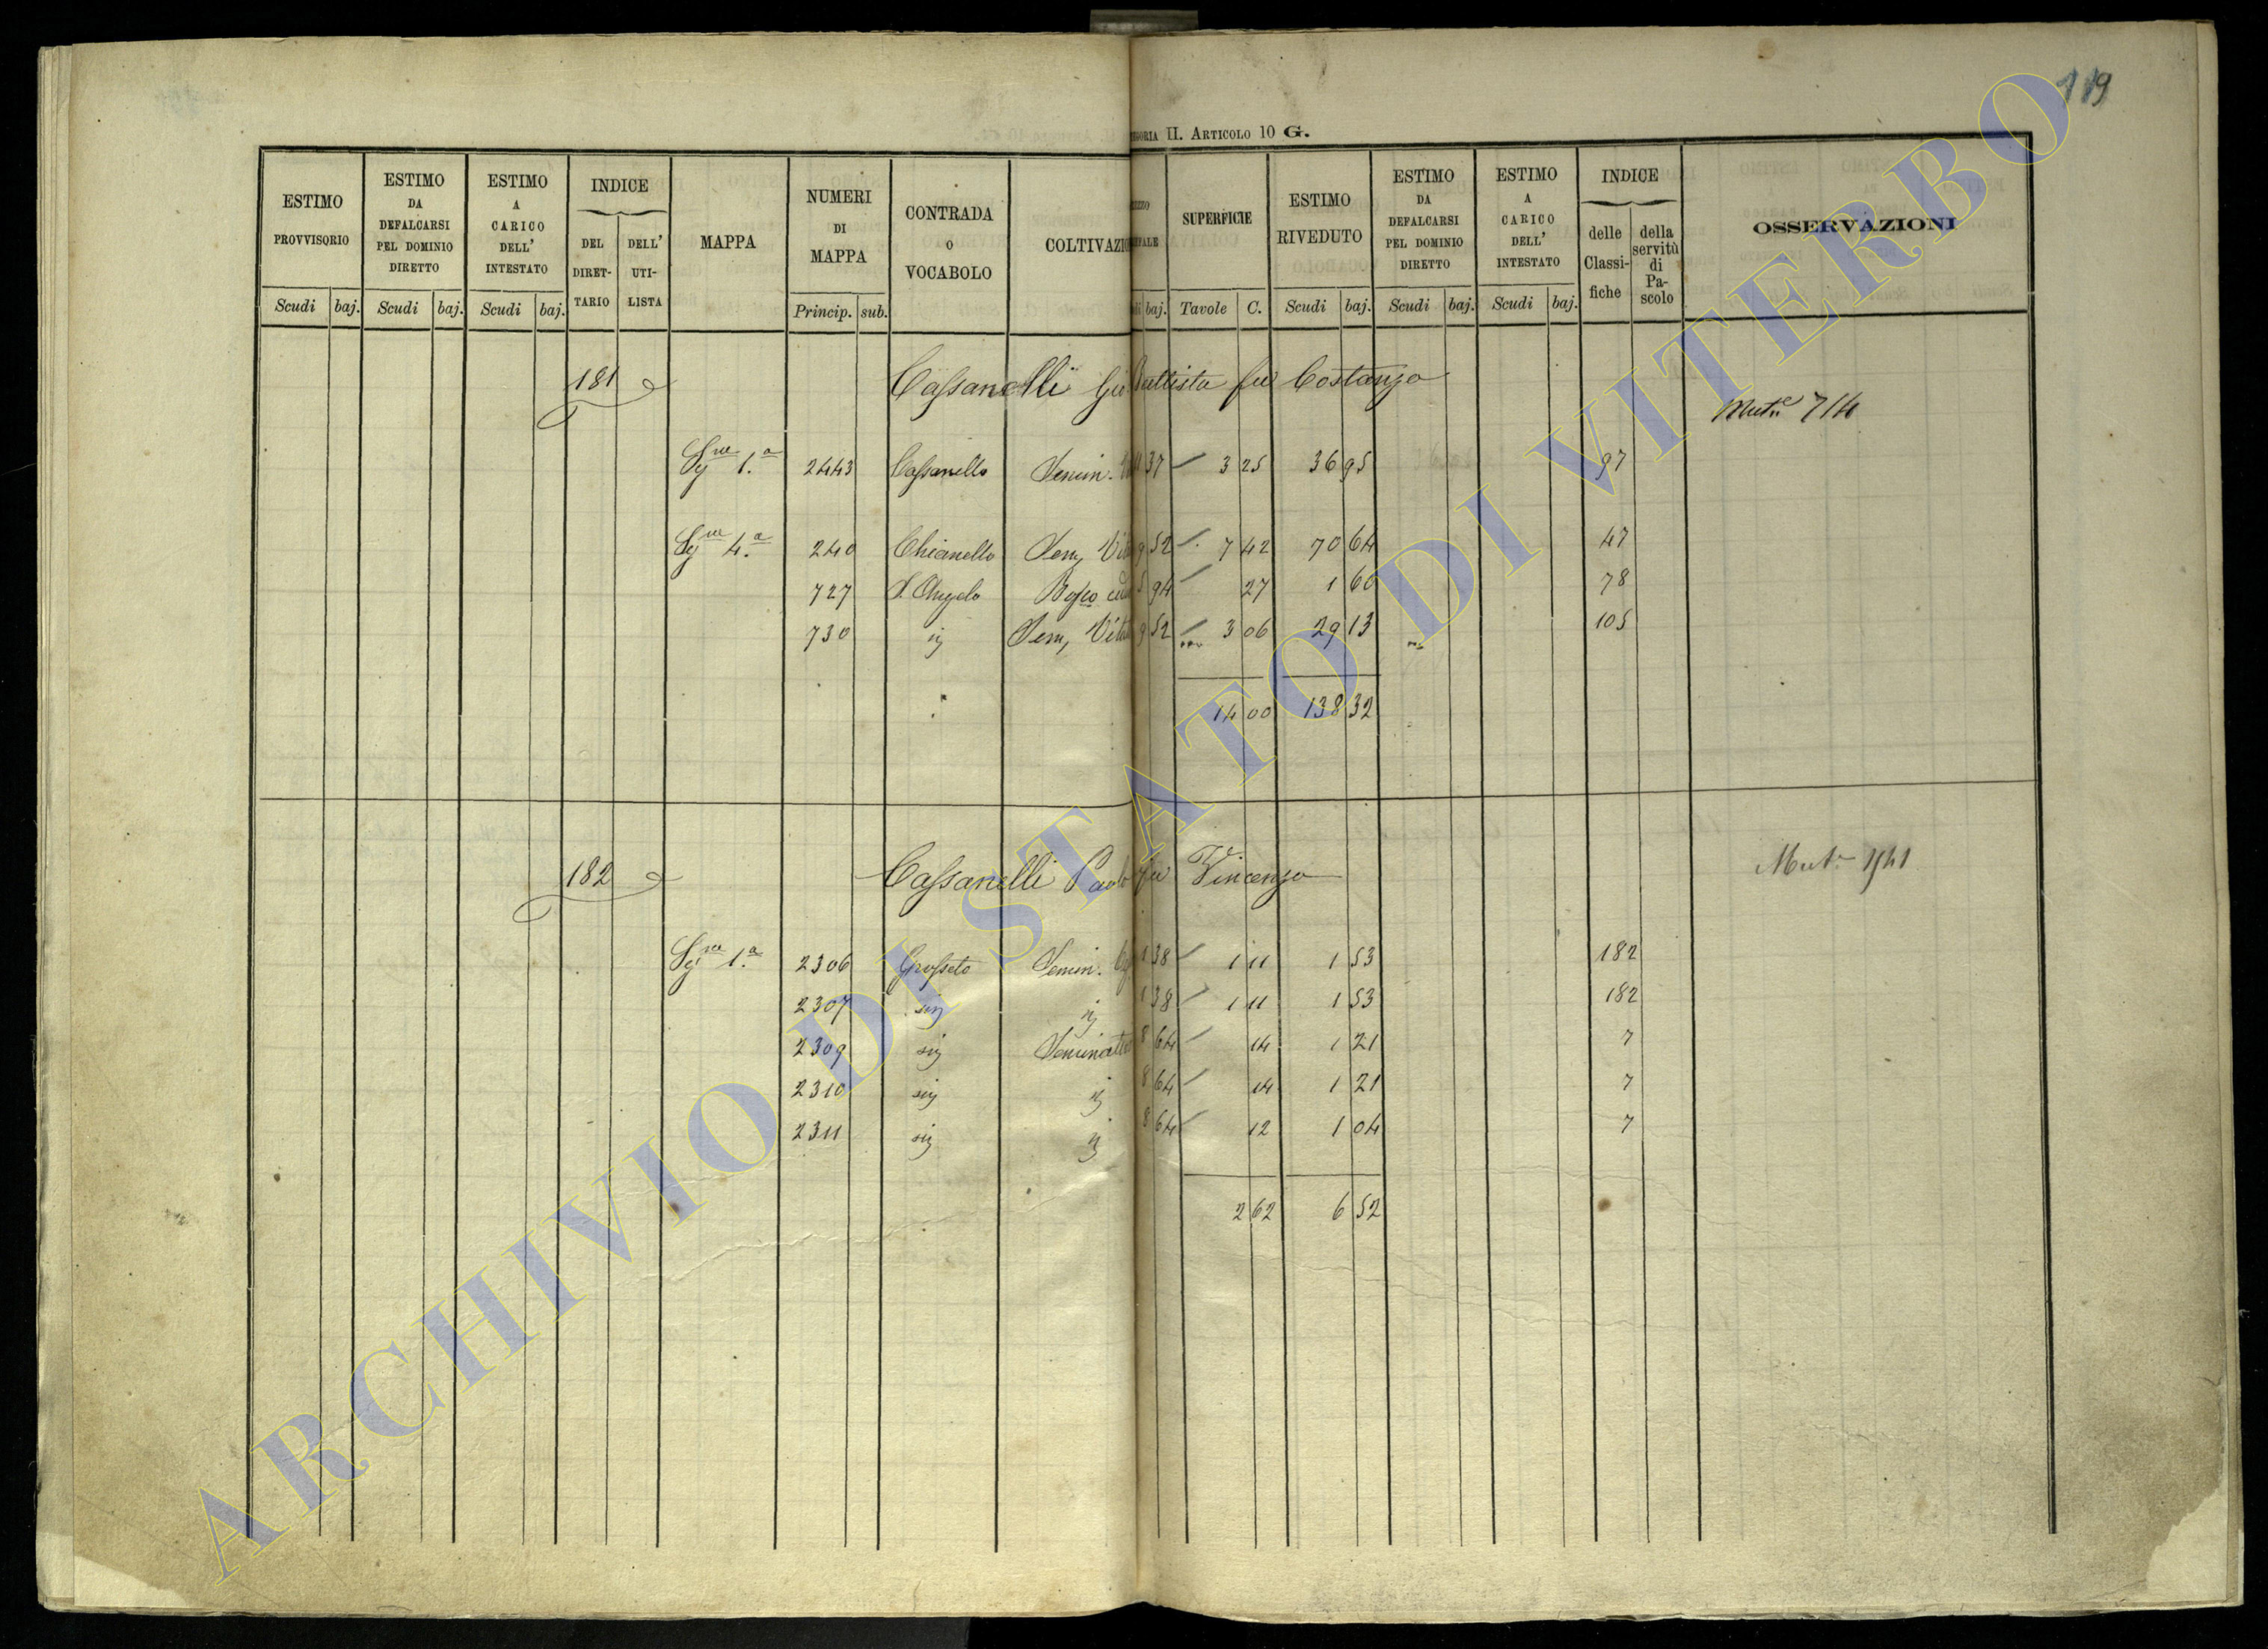 119
EGORIA II. ARTICOLO 10 G.
ESTIMO PROVVISORIO Scudi baj.
ESTIMO DA DEFALCARSI PEL DOMINIO DIRETTO Scudi baj.
ESTIMO A CARICO DELL' INTESTATO Scudi baj.
INDICE DEL DIRET-TARIO DELL' UTI-LISTA
MAPPA
NUMERI DI MAPPA Princip. sub.
CONTRADA O VOCABOLO
COLTIVAZIO
baj.
SUPERFICIE Tavole C.
ESTIMO RIVEDUTO Scudi baj.
ESTIMO DA DEFALCARSI PEL DOMINIO DIRETTO Scudi baj.
ESTIMO A CARICO DELL' INTESTATO Scudi baj.
INDICE delle Classi-fiche della servitù di Pa-scolo
OSSERVAZIONI
181 Cassanelli Gio Battista fu Costanzo
Mutne 714
1.a 2443 Cassanello Semin. 37 3 25 36 95 97
4.a 240 Chianello Sem, Vit 9 52 7 42 70 64 47
727 S. Angelo Bosco ced 5 94 27 1 60 78
730 ij Sem, Vit 9 52 3 06 29 13 105
14 00 138 32
182 Cassanelli Paolo fu Vincenzo
Mutne 1541
1.a 2306 Grosseto Semin. 1 38 1 11 1 53 182
2307 sij ij 1 38 1 11 1 53 182
2309 sij Seminat 8 64 14 1 21 7
2310 sij ij 8 64 14 1 21 7
2311 sij ij 8 64 12 1 04 7
2 62 6 52
ARCHIVIO DI STATO DI VITERBO